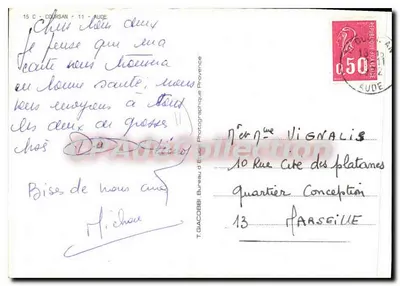 15 C - COURSAN - 11 - AUDE
Chers tous deux
Je pense que ma
carte vous trouvera
en bonne santé, nous
vous envoyons à tous
les deux de grosses
bises
Bises de nous
Michou
T. GIACOBBI Bureau d'Etude Photographique Provence
0,50
AUDE
Mr et Mme VIGNALIS
10 Rue Cité des platanes
quartier Conception
13 MARSEILLE